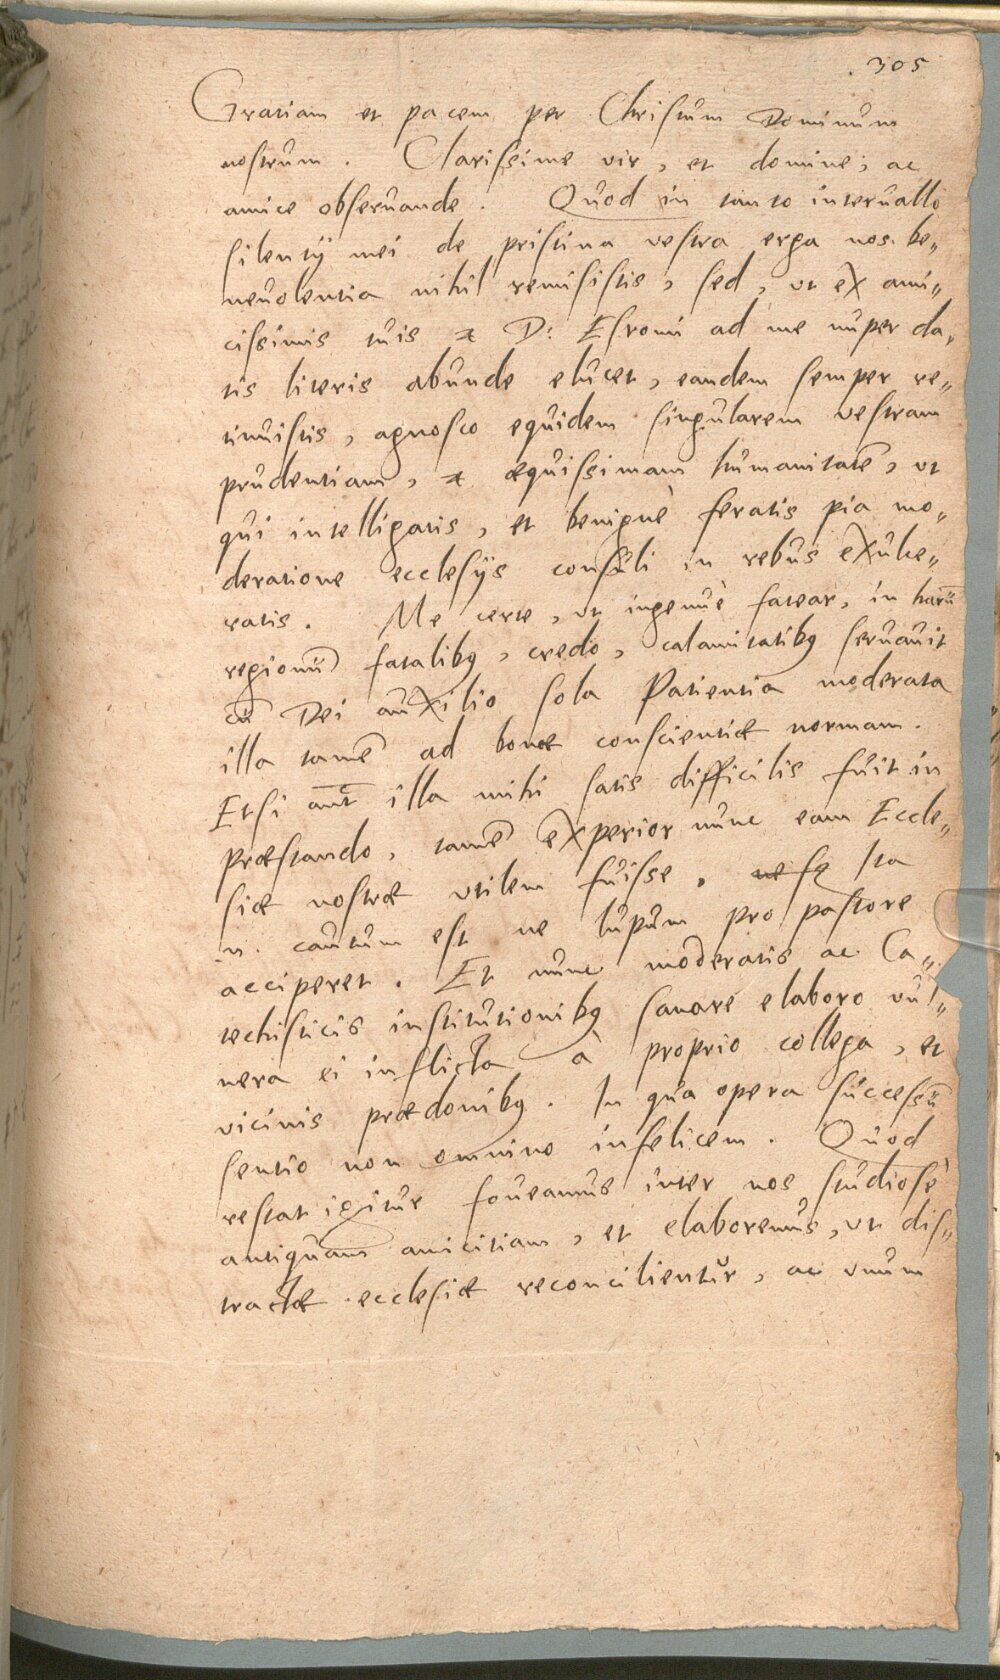 305
Gratiam et pacem per Christum Dominum
nostrum. Clarissime vir, et domine, ac
amice obseruande. Quod in tanto interuallo
silentij mei de pristina vestra erga nos be„
neuolentia nihil remisistis, sed, vt ex ami„
cissimis tuis & D: Esromi ad me nuper da„
tis literis abunde elucet, eandem semper re„
tinuistis, agnosco equidem singularem vestram
prudentiam, & æquissimam humanitatē, vt
qui intelligatis, et benignè feratis pia mo„
deratione ecclesijs consuli in rebus exulce„
ratis. Me certe, vt ingenuè fatear, in harū
regionū fatalibꝫ, credo, calamitatibꝫ seruauit
cū Dei auxilio sola Patientia moderata
illa tamē ad bonæ conscientiæ normam.
Etsi aut̄ illa mihi satis difficilis fuit in
præstando, tamē experior nunc eam Eccle„
siæ nostræ vtilem fuisse, Ita
n. cautum est ne lupum pro pastore
acciperet. Et nunc moderatis ac Ca„
techisticis institutionibꝫ sanare elaboro vul„
nera ei inflicta à proprio collega, et
vicinis prædonibꝫ. In qua opera successū
sentio non omnino infelicem. Quod
restat igitur foueamus inter nos studiosè
antiquam amicitiam, et elaboremus, vt dis„
tractæ ecclesiæ reconcilientur, ac vnum